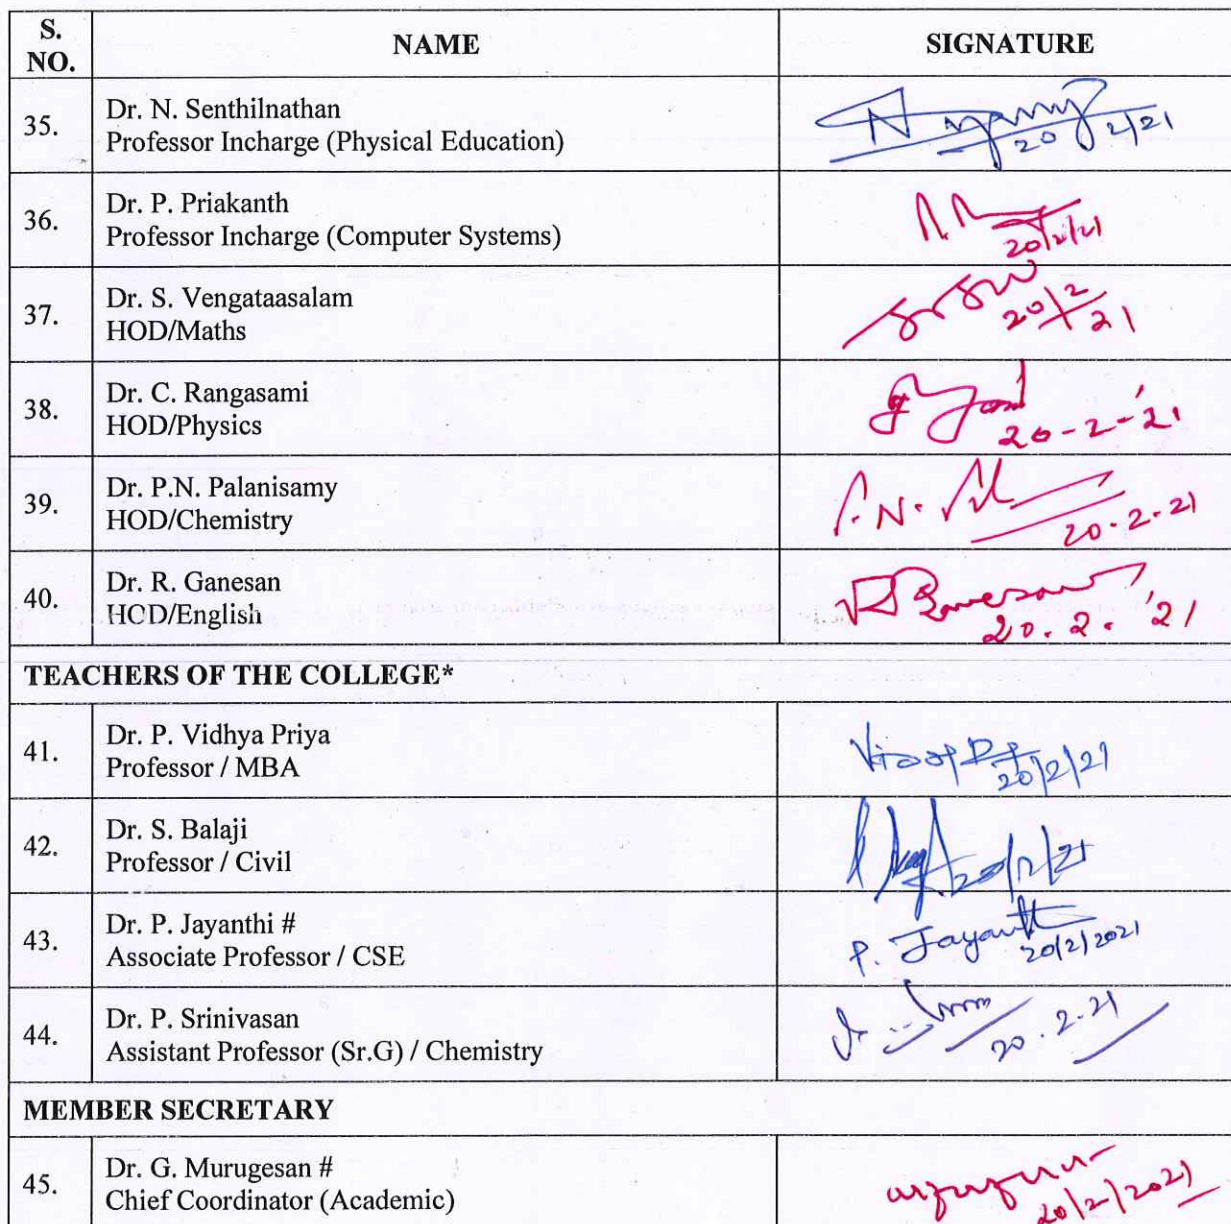 S. NO. NAME SIGNATURE
35. Dr. N. Senthilnathan
Professor Incharge (Physical Education)
20/2/21
36. Dr. P. Priakanth
Professor Incharge (Computer Systems)
20/2/21
37. Dr. S. Vengataasalam
HOD/Maths
20/2/21
38. Dr. C. Rangasami
HOD/Physics
20-2-'21
39. Dr. P.N. Palanisamy
HOD/Chemistry
20.2.21
40. Dr. R. Ganesan
HOD/English
20.2.'21
TEACHERS OF THE COLLEGE*
41. Dr. P. Vidhya Priya
Professor / MBA
20/2/21
42. Dr. S. Balaji
Professor / Civil
43. Dr. P. Jayanthi #
Associate Professor / CSE
P. Jayanthi
20/2/2021
44. Dr. P. Srinivasan
Assistant Professor (Sr.G) / Chemistry
20.2.21
MEMBER SECRETARY
45. Dr. G. Murugesan #
Chief Coordinator (Academic)
20/2/2021